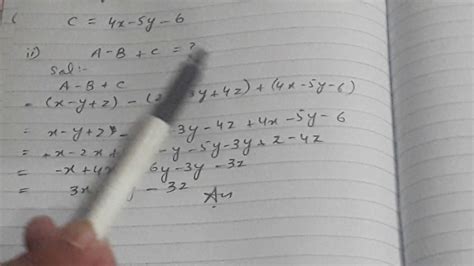 C = 4x - 5y - 6
ii) A - B + C = ?
Sol:-
A - B + C
= (x - y + z) - (2 3y + 4z) + (4x - 5y - 6)
= x - y + z - 3y - 4z + 4x - 5y - 6
= x - 2x + - y - 5y - 3y + z - 4z
= - x + 4x 6y - 3y - 3z
= 3x y - 3z Ans